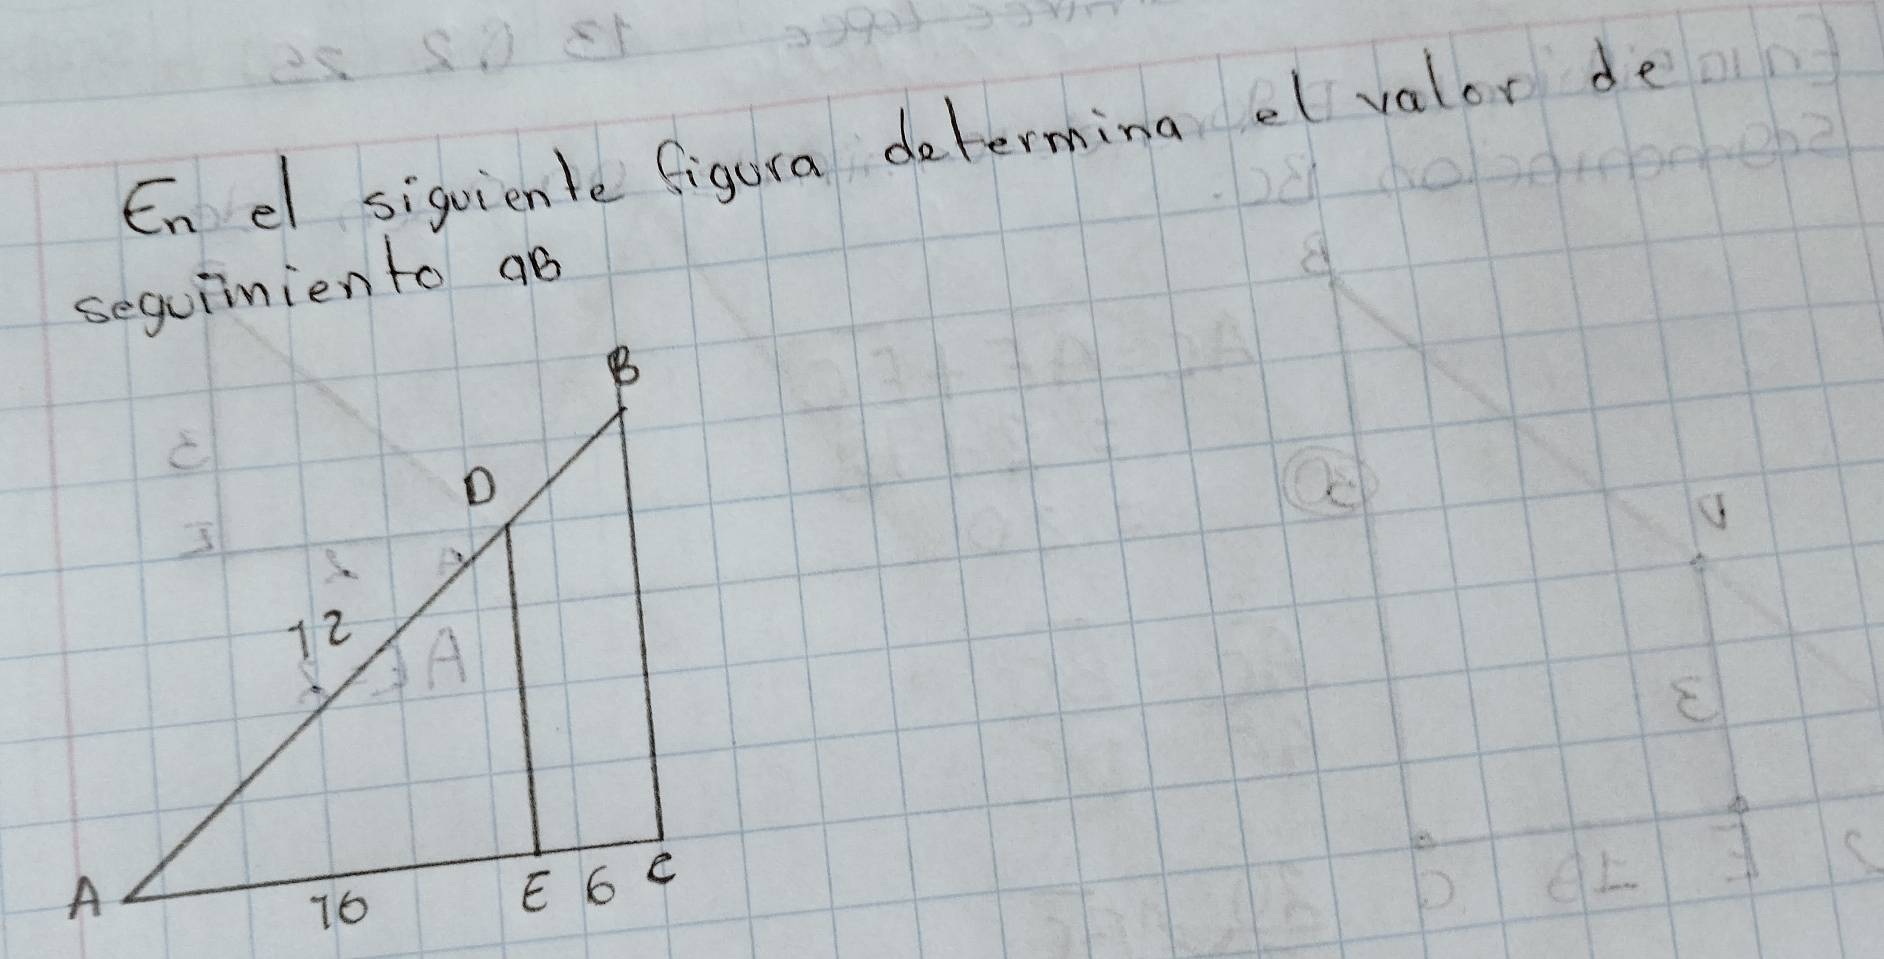 En el siguiente figura determina el valor de
seguimiento aB
B
D
12
A
16
E 6 C